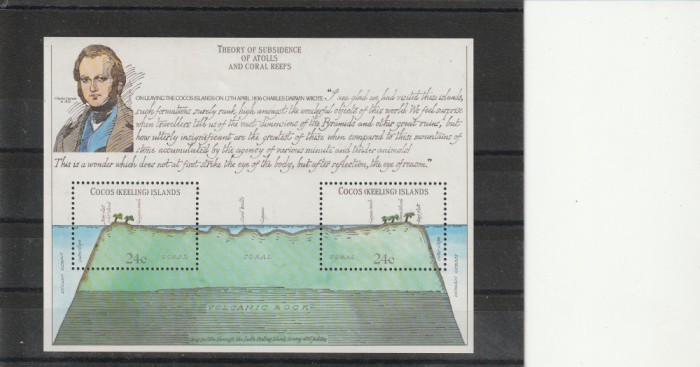 THEORY OF SUBSIDENCE
OF ATOLLS
AND CORAL REEFS
Charles Darwin
ON LEAVING THE COCOS ISLANDS ON 12TH APRIL 1836 CHARLES DARWIN WROTE "I am glad we had visited these islands,
such formations surely rank high amongst the wonderful objects of this world. We feel surprise
when travellers tell us of the vast dimensions of the Pyramids and other great ruins, but
how utterly insignificant are the greatest of these when compared to these mountains of
stone accumulated by the agency of various minute and tender animals!
This is a wonder which does not at first strike the eye of the body, but after reflection, the eye of reason."
COCOS (KEELING) ISLANDS
COCOS (KEELING) ISLANDS
Lagoon
24c CORAL CORAL CORAL 24c
VOLCANIC ROCK